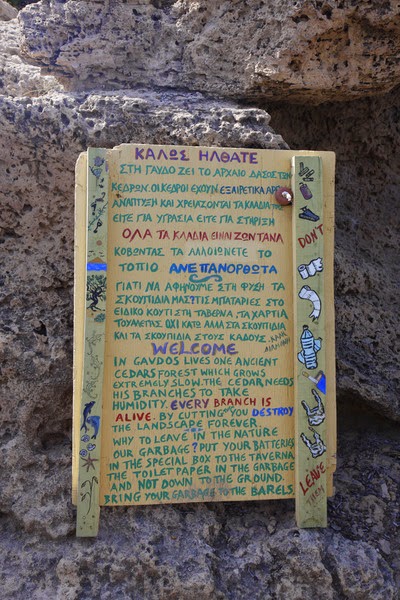 ΚΑΛΩΣ ΗΛΘΑΤΕ
ΣΤΗ ΓΑΥΔΟ ΖΕΙ ΤΟ ΑΡΧΑΙΟ ΔΑΣΟΣ ΤΩΝ
ΚΕΔΡΩΝ. ΟΙ ΚΕΔΡΟΙ ΕΧΟΥΝ ΕΞΑΙΡΕΤΙΚΑ ΑΡΓΗ
ΑΝΑΠΤΥΞΗ ΚΑΙ ΧΡΕΙΑΖΟΝΤΑΙ ΤΑ ΚΛΑΔΙΑ
ΕΙΤΕ ΓΙΑ ΥΓΡΑΣΙΑ ΕΙΤΕ ΓΙΑ ΣΤΗΡΙΞΗ
ΟΛΑ ΤΑ ΚΛΑΔΙΑ ΕΙΝΑΙ ΖΩΝΤΑΝΑ
ΚΟΒΩΝΤΑΣ ΤΑ ΑΛΛΟΙΩΝΕΤΕ ΤΟ
ΤΟΠΙΟ ΑΝΕΠΑΝΟΡΘΩΤΑ
ΓΙΑΤΙ ΝΑ ΑΦΗΝΟΥΜΕ ΣΤΗ ΦΥΣΗ ΤΑ
ΣΚΟΥΠΙΔΙΑ ΜΑΣ? ΤΙΣ ΜΠΑΤΑΡΙΕΣ ΣΤΟ
ΕΙΔΙΚΟ ΚΟΥΤΙ ΣΤΗ ΤΑΒΕΡΝΑ, ΤΑ ΧΑΡΤΙΑ
ΤΟΥΑΛΕΤΑΣ ΟΧΙ ΚΑΤΩ ΑΛΛΑ ΣΤΑ ΣΚΟΥΠΙΔΙΑ
ΚΑΙ ΤΑ ΣΚΟΥΠΙΔΙΑ ΣΤΟΥΣ ΚΑΔΟΥΣ. ΚΑΛΗ ΔΙΑΜΟΝΗ
WELCOME
IN GAVDOS LIVES ONE ANCIENT
CEDARS FOREST WHICH GROWS
EXTREMELY SLOW. THE CEDAR, NEEDS
HIS BRANCHES TO TAKE
HUMIDITY. EVERY BRANCH IS
ALIVE. BY CUTTING YOU DESTROY
THE LANDSCAPE FOREVER.
WHY TO LEAVE IN THE NATURE
OUR GARBAGE? PUT YOUR BATTERIES
IN THE SPECIAL BOX TO THE TAVERNA
THE TOILET PAPER IN THE GARBAGE
AND NOT DOWN TO THE GROUND.
BRING YOUR GARBAGE TO THE BARELS.
DON'T
LEAVE
THEM